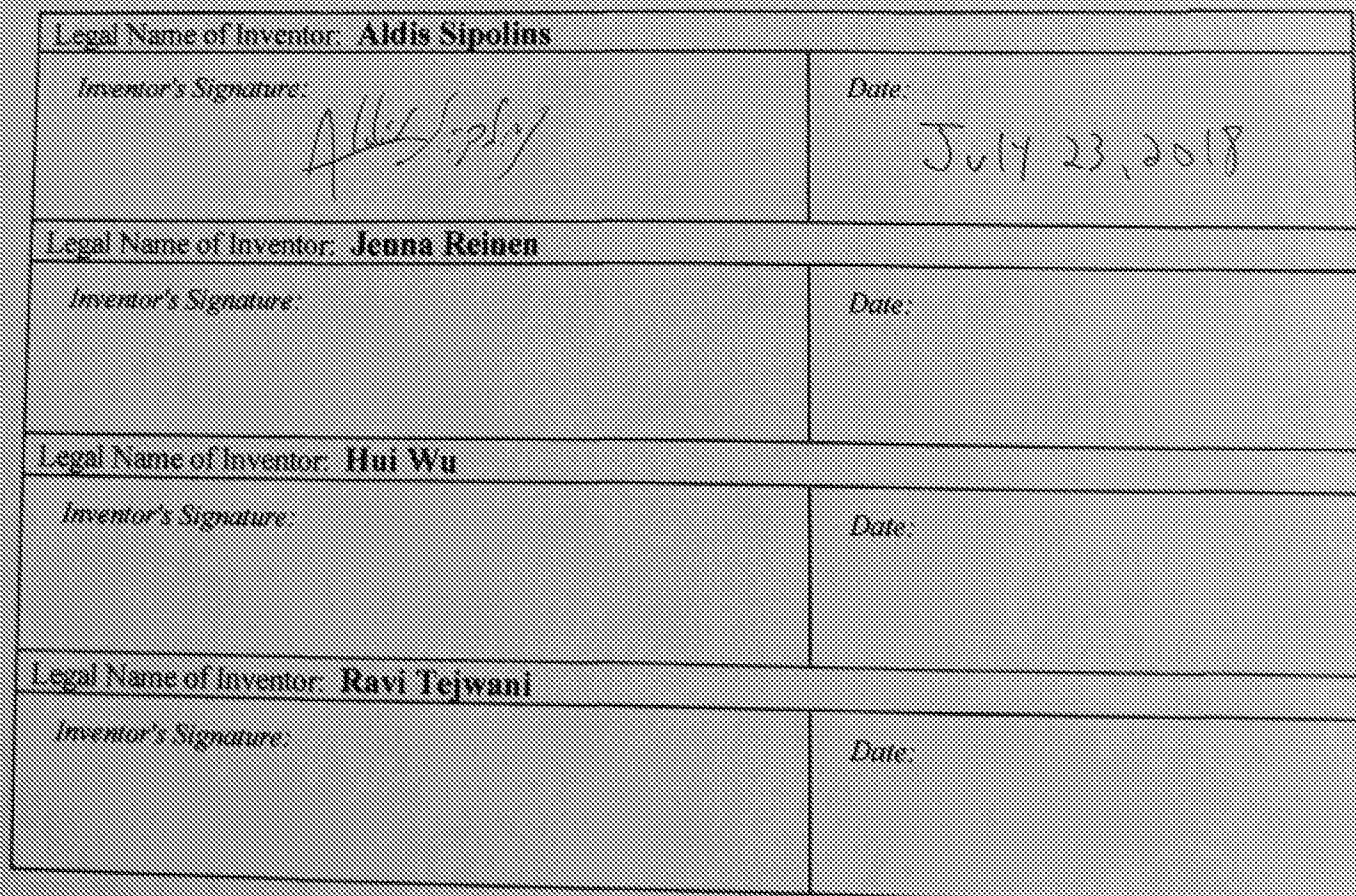 Legal Name of Inventor: Aldis Sipolins
Inventor's Signature: Date:
July 23, 2018
Legal Name of Inventor: Jenna Reinen
Inventor's Signature: Date:
Legal Name of Inventor: Hui Wu
Inventor's Signature: Date:
Legal Name of Inventor: Ravi Tejwani
Inventor's Signature: Date: